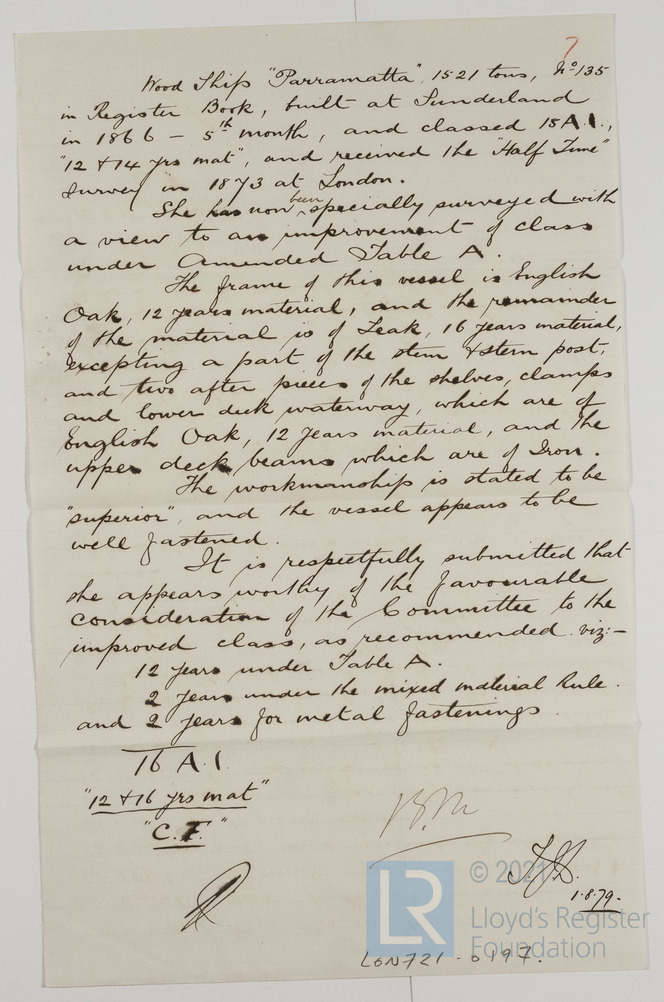 7
Wood Ship "Parramatta", 1521 tons, No 135
in Register Book, built at Sunderland
in 1866 - 5th month, and classed 15 A.1.,
"12 & 14 yrs mat", and received the "Half Time"
Survey in 1873 at London.
She has now been specially surveyed with
a view to an improvement of class
under Amended Table A.
The frame of this vessel is English
Oak, 12 years material, and the remainder
of the material is of Teak, 16 years material,
excepting a part of the stem & stern post,
and two after pieces of the shelves, clamps
and lower deck waterway, which are of
English Oak, 12 years material, and the
upper deck beams which are of Iron.
The workmanship is stated to be
"superior", and the vessel appears to be
well fastened.
It is respectfully submitted that
she appears worthy of the favourable
consideration of the Committee to the
improved class, as recommended. viz:-
12 years under Table A.
2 years under the mixed material Rule.
and 2 years for metal fastenings.
16 A.1.
"12 & 16 yrs mat"
"C.F."
1.8.79.
© 2021
LR
Lloyd's Register
Foundation
LON721-0197.